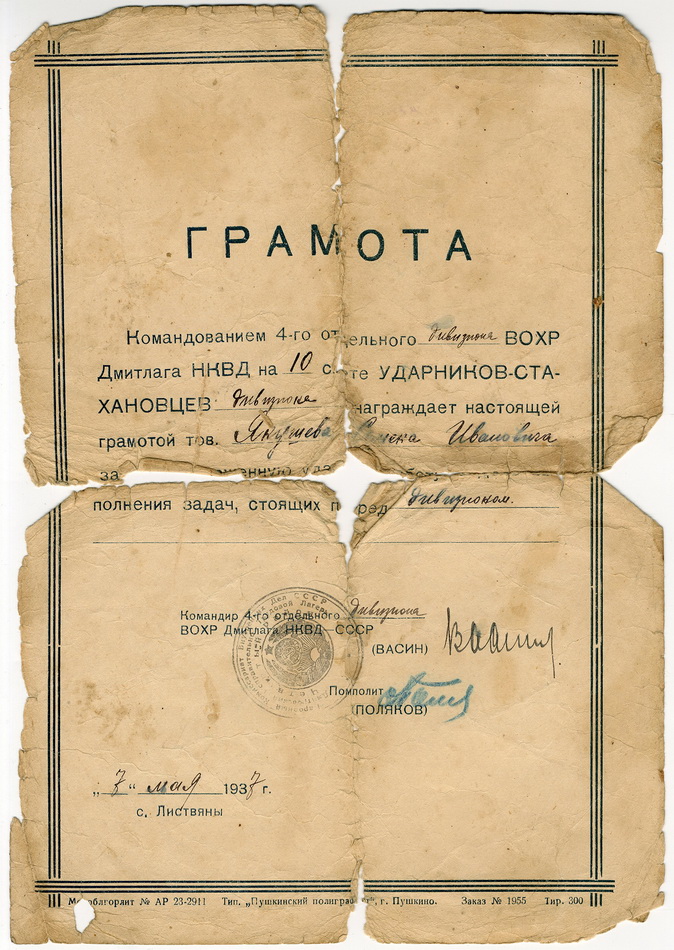 ГРАМОТА
Командованием 4-го отдельного дивизиона ВОХР
Дмитлага НКВД на 10 слете УДАРНИКОВ-СТА-
ХАНОВЦЕВ дивизиона награждает настоящей
грамотой тов. Якушева Ивановича
за
полнения задач, стоящих перед дивизионом.
Командир 4-го отдельного дивизиона
ВОХР Дмитлага НКВД СССР
(ВАСИН) Васин
Помполит
(ПОЛЯКОВ)
„7" мая 1937 г.
с. Листвяны
№ АР 23-2911 Тип. „Пушкинский г. Пушкино. Заказ № 1955 Тир. 300